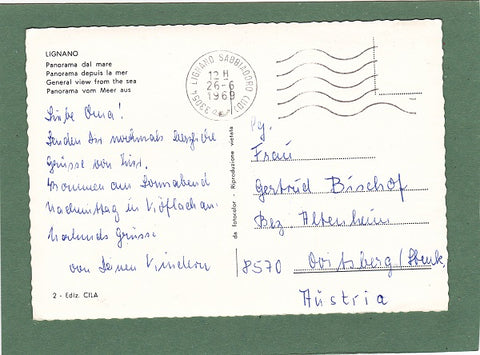 LIGNANO
Panorama dal mare
Panorama depuis la mer
General view from the sea
Panorama vom Meer aus
33054 LIGNANO SABBIADORO (UD)
12 H
26-6
1969
Liebe Oma!
Senden Dir nochmals herzliche
Grüsse von hier.
Kommen am Sonnabend
Nachmittag in Voitsberg an.
Grüsse
von Deinen Kindern
2 - Ediz. CILA
da fotocolor - Riproduzione vietata
Frau
Gertrud Bischof
Bez. Altenheim
8570 Voitsberg / Stmk.
Austria